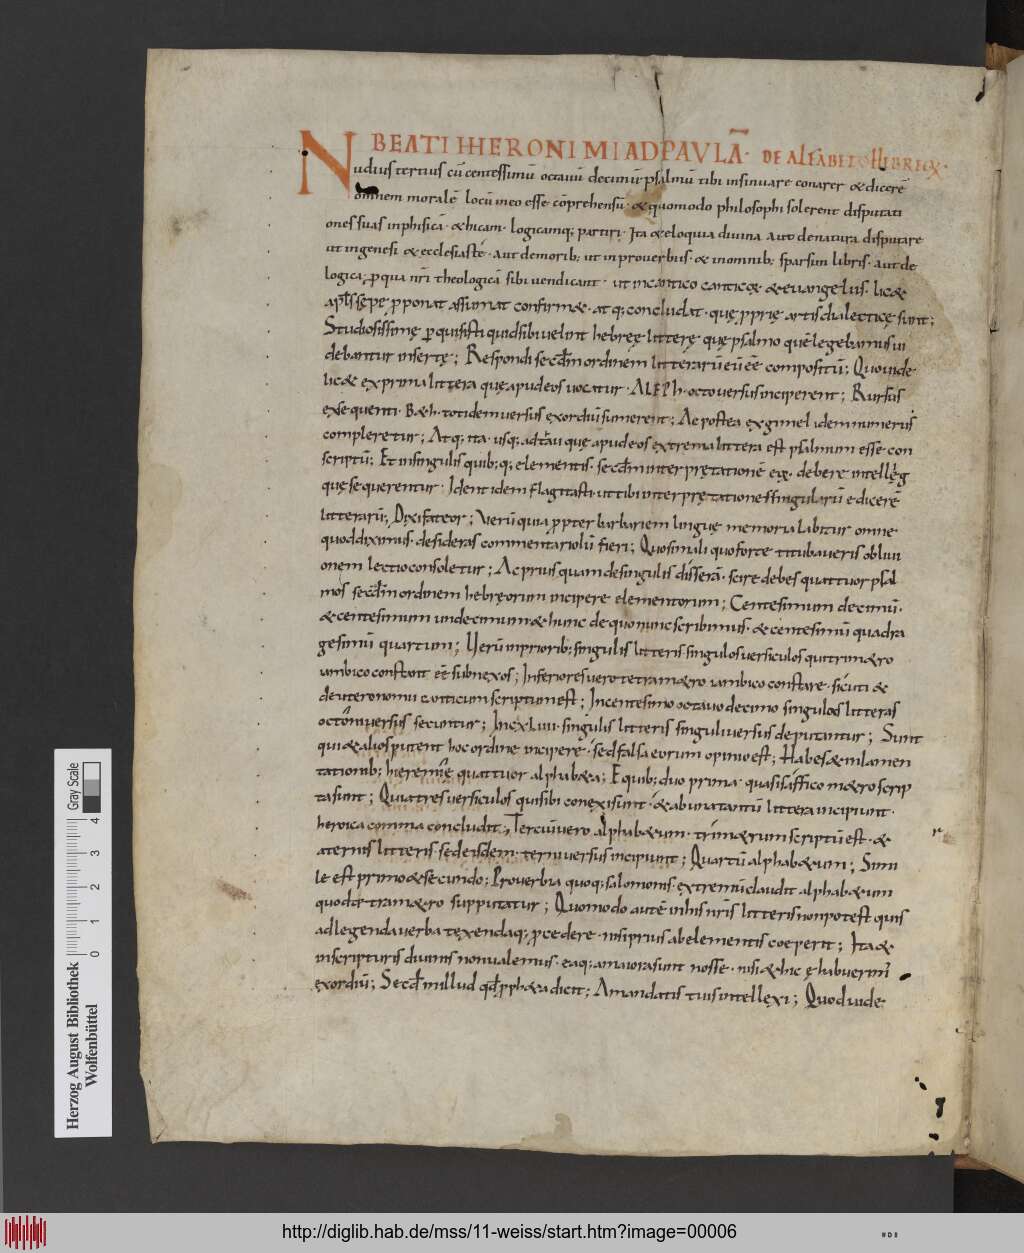 BEATI HIERONIMI AD PAVLĀ· DE ALFABETO HEBREOꝜ·
Nudius tertius cū centessimū octauū decimū psalmū tibi insinuare conarer & dicerē
omnem moralē locū in eo esse cōprehensū· & quomodo philosophi solerent disputati
ones suas in phisicā· & hicam· logicamq; partiri· Ita & eloquia diuina aut de natura disputare
ut in genesi & ecclesiastē· aut de morib; ut in prouerbiis· & in omnib; sparsim libris· aut de
logica; ꝓ qua nr̄i theologicā sibi uendicant· ut in cantico canticoꝝ & euangeliis· lic&
apl̄s sepe ꝓponat assumat confirm&· atq; concludat· quę ꝓprię artis dialecticę sunt;
Studiosissimę ꝑquisisti quid sibi uelint hebręę litterę quę psalmo quē legebamus ui
debantur insertę; Respondi secd̄m ordinem litterarū eū eē compositū; Quo uide
lic& ex prima littera quę apud eos uocatur· ALEPh· octo uersus inciperent; Rursus
ex sequenti· B&h· totidem uersus exordiū sumerent; Ac postea ex gimel idem numerus
compleretur; Atq; ita· usq; ad tau quę apud eos extrema littera est psalmum esse con
scriptū; Et in singulis quib;q; elementis· secd̄m interpretationē eiꝰ· debere intellęg
quę sequerentur· Identidem flagitasti· ut tibi interpretationes singularū edicerē
litterarū; Dixi fateor; Uerū quia ꝓpter barbariem linguę memoria labitur omne
quod diximus· desideras commentariolū fieri; Quo simili quo forte titubaueris obliui
onem lectio consoletur; Ac prius quam de singulis disserā· scire debes quattuor psal
mos secd̄m ordinem hebręorum incipere elementorum; Centesimum decimū·
& centesimum undecimum & hunc de quo nunc scribimus· & centesimū quadra
gesimū quartum; Uerū in priorib; singulis litteris singulos uersiculos qui trim&ro
iambico constant eē subnexos; Inferiores uero tetram&ro iambico constare· sicuti &
deuteronomii canticum scriptum est; In centesimo octauo decimo singulos litteras
octoni uersus secuntur; In cxliiii· singulis litteris singuli uersus deputantur; Sunt
qui & alios putent hoc ordine incipere· sed falsa eorum opinio est; Habes & in lamen
tationib; hieremię quattuor alphab&a; E quib; duo prima· quasi saffico m&ro scrip
ta sunt; Quia tres uersiculos qui sibi conexi sunt· & ab una tantū littera incipiunt·
heroica comma concludit; Terciū uero alphab&um· trim&rum scriptū est· &
a ternis litteris sed eisdem· terni uersus incipiunt; Quartū alphab&um; Simi
le est primo & secundo; Prouerbia quoq; salomonis· extremū claudit alphab&um
quod t&tram&ro supputatur; Quomodo autē in his nr̄is litteris non potest quis
ad legenda uerba texendaq; ꝓcedere· nisi prius ab elementis coeperit; Ita &
in scripturis diuinis non ualemus· ea q; maiora sunt nosse· nisi & hic ęhabuerim̄
exordiū; Secd̄m illud qd̄ ꝓph&a dicit; A mandatis tuis intellexi; Quod uide
Herzog August Bibliothek
Wolfenbüttel
0 1 2 3 4
Gray Scale
http://diglib.hab.de/mss/11-weiss/start.htm?image=00006